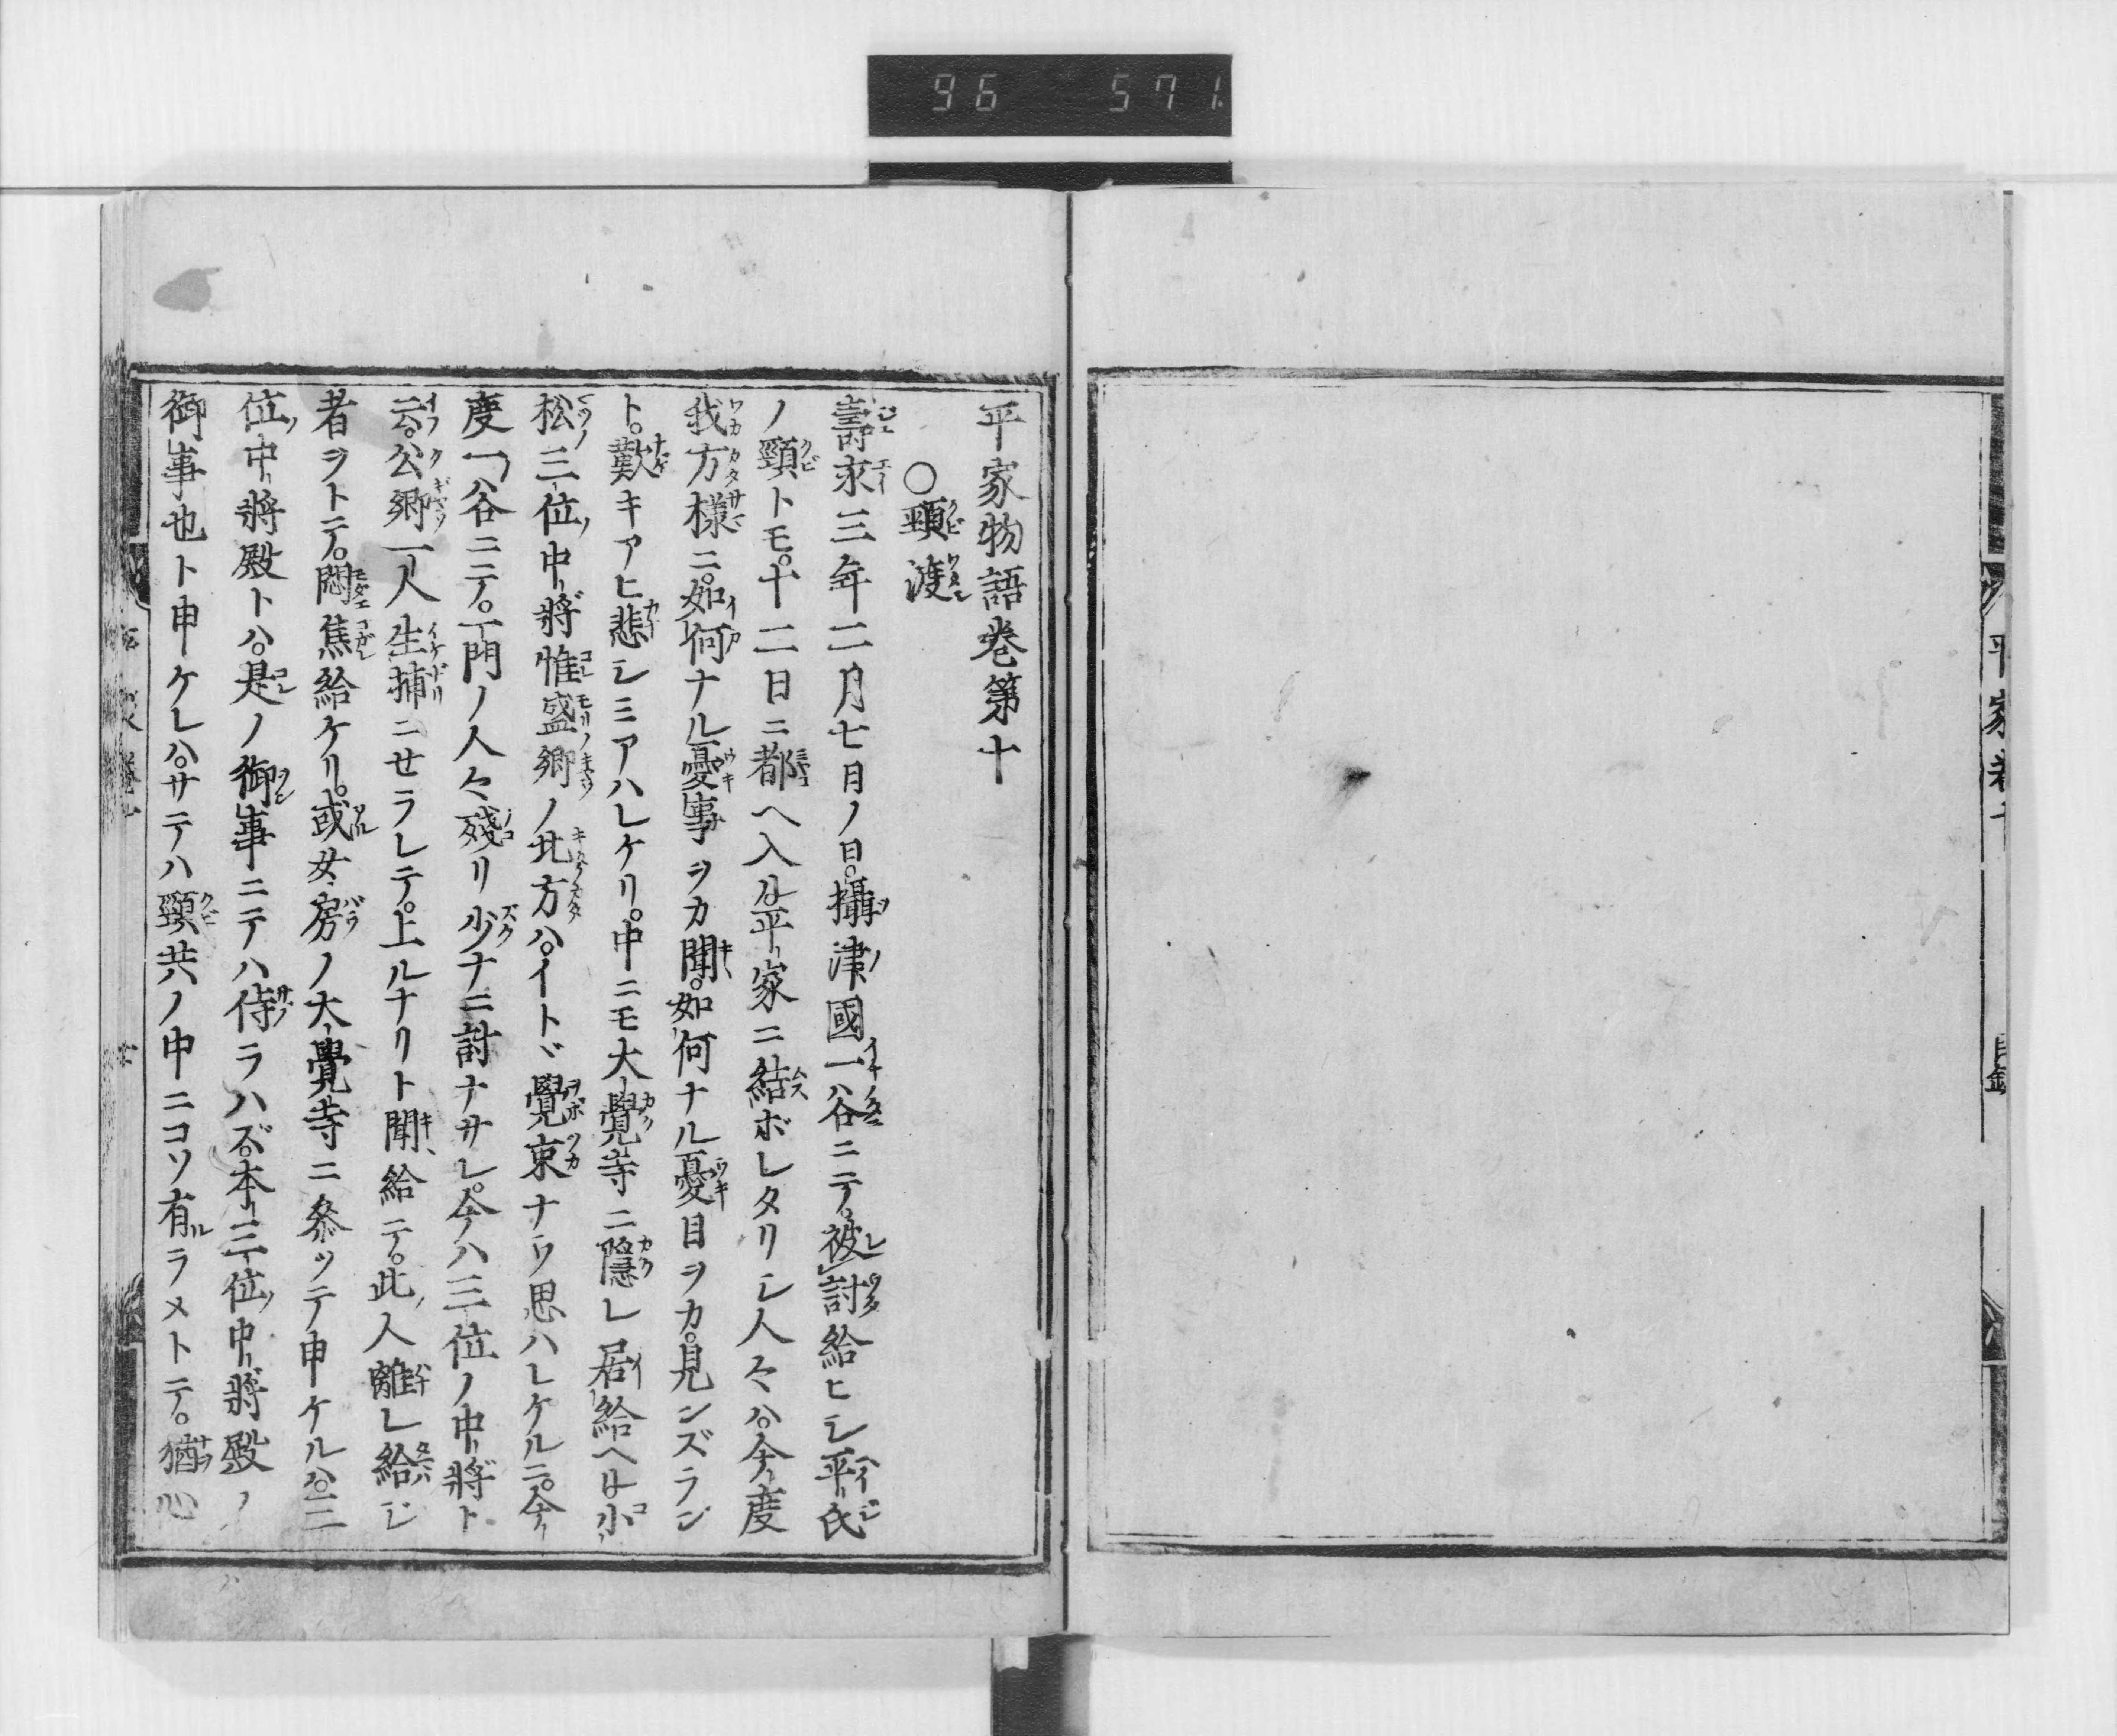 96 571.
平家卷十
目録
平家物語卷第十
○頸渡
壽永三年二月七日ノ日。攝津國一谷ニテ。被討給ヒシ平氏
ノ頸トモ。十二日ニ都ヘ入ル。平家ニ結ボレタリシ人々ハ。今度
我方樣ニ。如何ナル憂事ヲカ聞。如何ナル憂目ヲカ。見ンズラン
ト。歎キアヒ悲シミアハレケリ。中ニモ大覺寺ニ隱レ居給ヘル小
松三位中將惟盛卿ノ北方ハ。イトヾ覺束ナウ思ハレケルニ。今
度一谷ニテ。一門ノ人々殘リ少ナニ討ナサレ。今ハ三位ノ中將ト
云。公卿一人生捕ニセラレテ。上ルナリト聞給テ。此人離レ給ジ
者ヲトテ。悶焦給ケリ。或女房ノ大覺寺ニ參ツテ申ケルハ。三
位中將殿トハ。是ノ御事ニテハ侍ラハズ。本三位中將殿ノ
御事也ト申ケレハ。サテハ頸共ノ中ニコソ有ルラメトテ。猶心